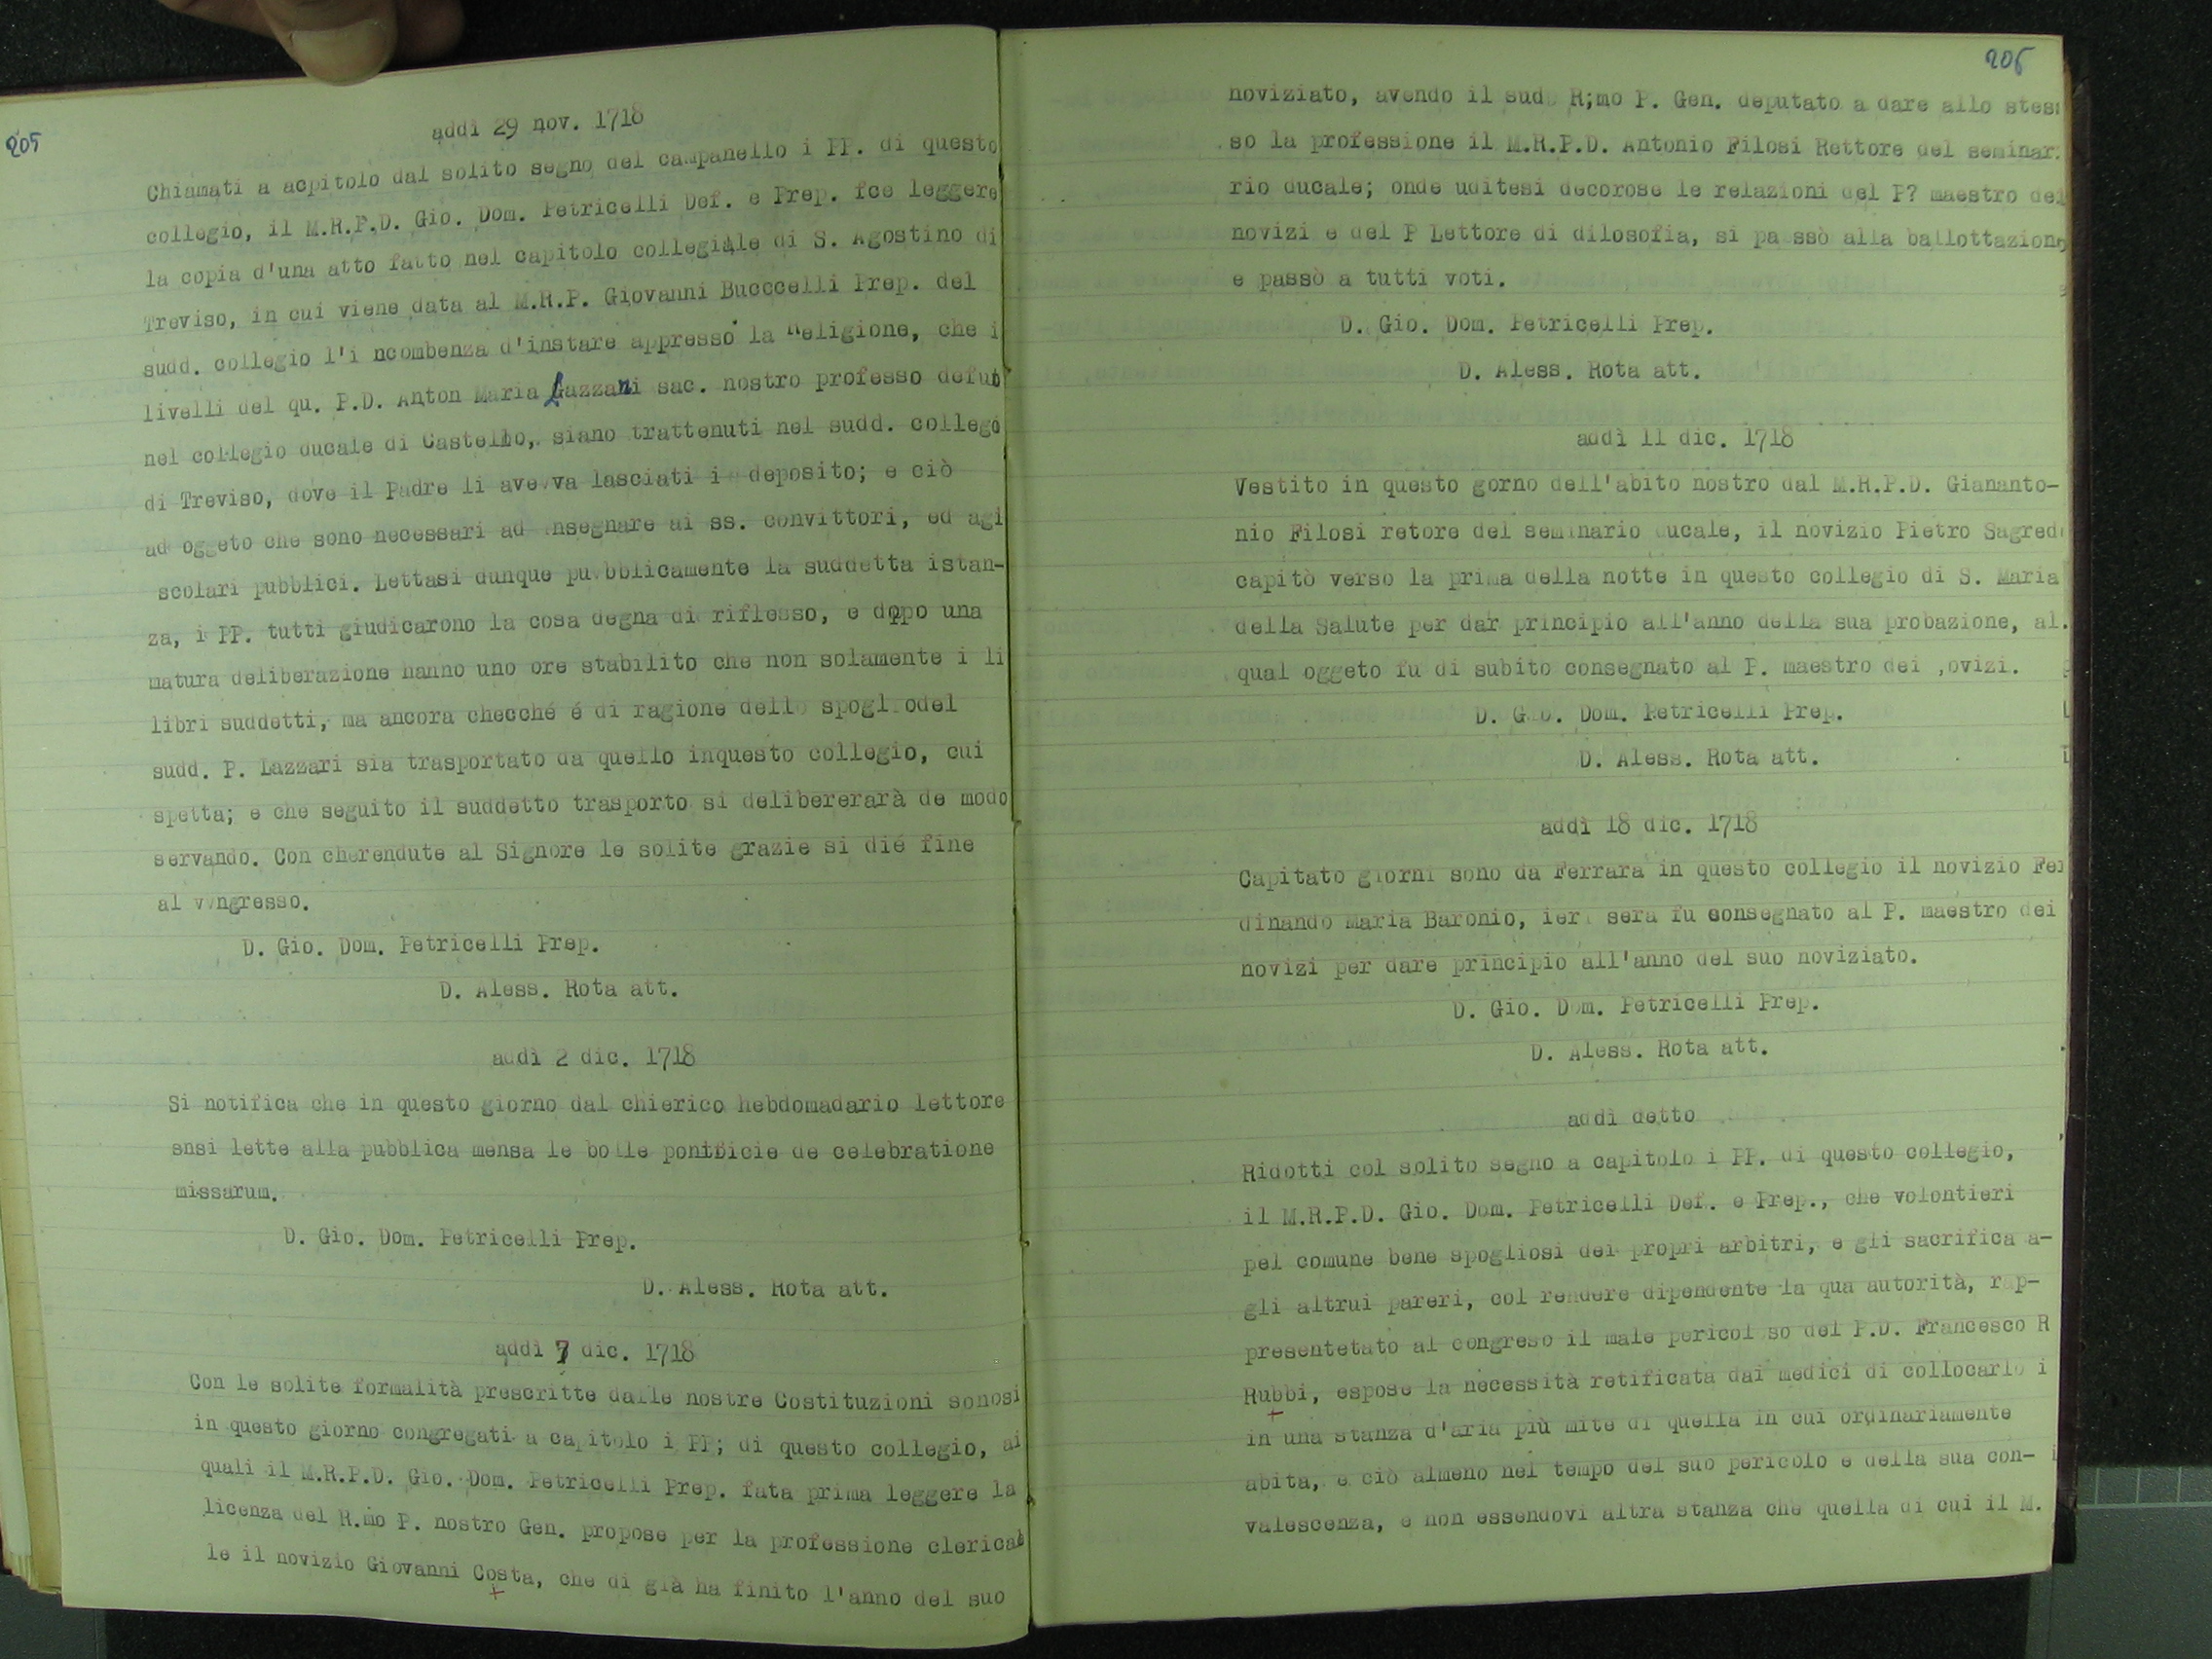 205
addì 29 nov. 1718
Chiamati a acpitolo dal solito segno del campanello i PP. di questo
collegio, il M.R.P.D. Gio. Dom. Petricelli Def. e Prep. fce leggere
la copia d'una atto fatto nel capitolo collegiale di S. Agostino di
Treviso, in cui viene data al M.R.P. Giovanni Bucccelli Prep. del
sudd. collegio l'i ncombenza d'instare appresso la Religione, che i
livelli del qu. P.D. Anton Maria Lazzani sac. nostro professo defut
nel collegio ducale di Castello, siano trattenuti nel sudd. collego
di Treviso, dove il Padre li avevva lasciati i deposito; e ciò
ad oggeto che sono necessari ad insegnare ai ss. convittori, ed agi
scolari pubblici. Lettasi dunque pubblicamente la suddetta istan-
za, i PP. tutti giudicarono la cosa degna di riflesso, e dopo una
matura deliberazione hanno uno ore stabilito che non solamente i li
libri suddetti, ma ancora checché é di ragione dello spogliodel
sudd. P. Lazzari sia trasportato da quello inquesto collegio, cui
spetta; e che seguito il suddetto trasporto si delibererarà de modo
servando. Con cherendute al Signore le solite grazie si dié fine
al vongresso.
D. Gio. Dom. Petricelli Prep.
D. Aless. Rota att.
addì 2 dic. 1718
Si notifica che in questo giorno dal chierico hebdomadario lettore
snsi lette alla pubblica mensa le bolle pontiicie de celebratione
missarum.
D. Gio. Dom. Petricelli Prep.
D. Aless. Rota att.
addì 7 dic. 1718
Con le solite formalità prescritte dalle nostre Costituzioni sonosi
in questo giorno congregati a capitolo i PP; di questo collegio, ai
quali il M.R.P.D. Gio. Dom. Petricelli Prep. fata prima leggere la
licenza del R.mo P. nostro Gen. propose per la professione clerical
le il novizio Giovanni Costa, che di già ha finito l'anno del suo
206
noviziato, avendo il sudd R;mo P. Gen. deputato a dare allo stess
so la professione il M.R.P.D. Antonio Filosi Rettore del seminar
rio ducale; onde uditesi decorose le relazioni del P? maestro dei
novizi e del P Lettore di dilosofia, si passò alla ballottazione
e passò a tutti voti.
D. Gio. Dom. Petricelli Prep.
D. Aless. Rota att.
addì 11 dic. 1718
Vestito in questo gorno dell'abito nostro dal M.R.P.D. Giananto-
nio Filosi retore del seminario ducale, il novizio Pietro Sagredo
capitò verso la prima della notte in questo collegio di S. Maria
della Salute per dar principio all'anno della sua probazione, al
qual oggeto fu di subito consegnato al P. maestro dei ,ovizi.
D. Gio. Dom. Petricelli Prep.
D. Aless. Rota att.
addì 18 dic. 1718
Capitato giorni sono da Ferrara in questo collegio il novizio Fer
dinando Maria Baronio, ieri sera fu consegnato al P. maestro dei
novizi per dare principio all'anno del suo noviziato.
D. Gio. Dom. Petricelli Prep.
D. Aless. Rota att.
addì detto
Ridotti col solito segno a capitolo i PP. di questo collegio,
il M.R.P.D. Gio. Dom. Petricelli Def. e Prep., che volontieri
pel comune bene spogliosi dei propri arbitri, e gli sacrifica a-
gli altrui pareri, col rendere dipendente la qua autorità, rap-
presentetato al congreso il male pericoloso del P.D. Francesco R
Rubbi, espose la necessità retificata dai medici di collocarlo i
in una stanza d'aria più mite di quella in cui ordinariamente
abita, e ciò almeno nel tempo del suo pericolo e della sua con-
valescenza, e non essendovi altra stanza che quella di cui il M.